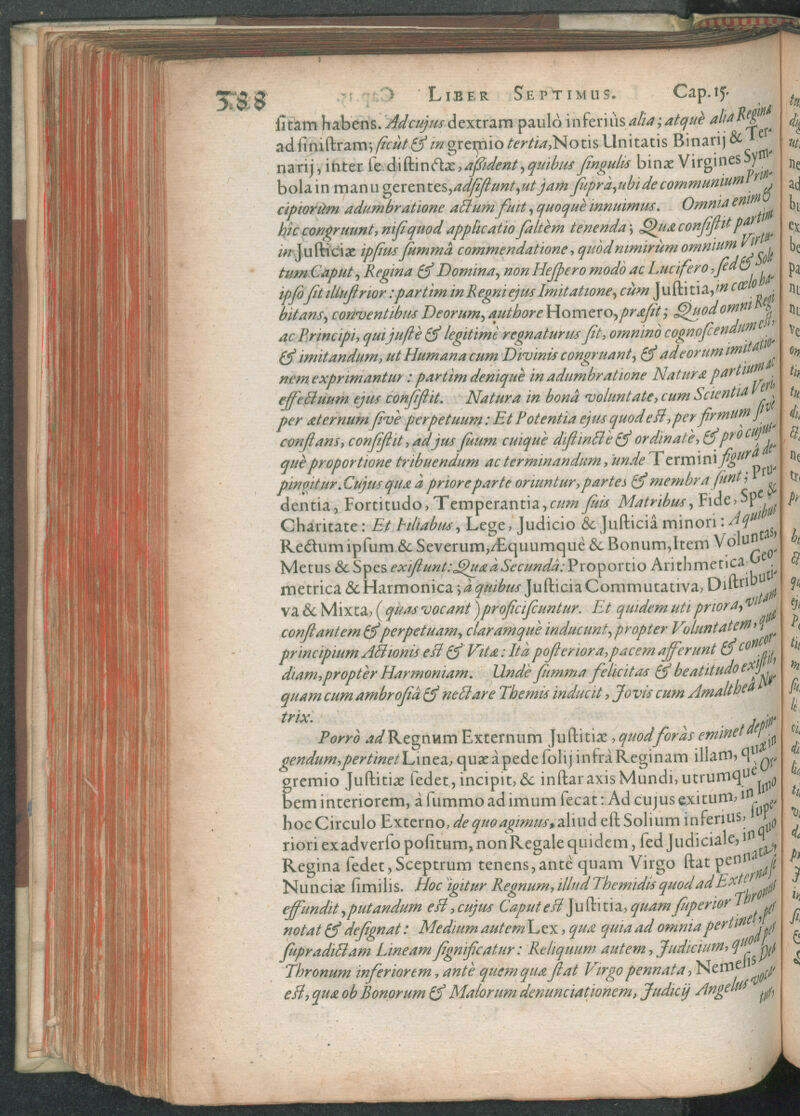 388 LIBER SEPTIMUS. Cap.15.
ſitam habens. Ad cujus dextram paulò inferiùs alia; atquè alia Regina
ad ſiniſtram; ſicùt & in gremio tertia, Notis Unitatis Binarij & Ter-
narij, inter ſe diſtinctæ, aßident, quibus ſingulis binæ Virgines Sym-
bola in manu gerentes, adſiſtunt, ut jam ſuprà, ubi de communium Prin-
cipiorùm adumbratione actum fuit, quoquè innuimus. Omnia enim &
hîc congruunt, niſi quod applicatio ſaltèm tenenda; Quæ conſiſtit partim
in Juſticiæ ipſius ſummâ commendatione, quòd nimirùm omnium Virtu-
tum Caput, Regina & Domina, non Heſpero modò ac Lucifero, ſed & Sole
ipſo ſit illuſtrior: partim in Regni ejus Imitatione, cùm Juſtitia, in cœlo ha-
bitans, conventibus Deorum, authore Homero, præſit; Quod omni Regi
ac Principi, qui juſtè & legitimè regnaturus ſit, omninò cognoſcendum eſt,
& imitandum, ut Humana cum Divinis congruant, & ad eorum imitatio-
nem exprimantur: partìm deniquè in adumbratione Naturæ partium ac
effectuum ejus conſiſtit. Natura in bonâ voluntate, cum Scientia Veri,
per æternum ſivè perpetuum: Et Potentia ejus quod eſt, per firmum ſivè
conſtans, conſiſtit, ad jus ſuum cuiquè diſtinctè & ordinatè, & pro cujus-
què proportione tribuendum ac terminandum, unde Termini figurâ de-
pingitur. Cujus quæ à priore parte oriuntur, partes & membra ſunt; Pru-
dentia, Fortitudo, Temperantia, cum ſuis Matribus, Fide, Spe &
Charitate: Et Filiabus, Lege, Judicio & Juſticiâ minori: A quibus
Rectum ipſum & Severum, Æquumquè & Bonum, Item Voluntas,
Metus & Spes exiſtunt: Quæ à Secundâ: Proportio Arithmetica Geo-
metrica & Harmonica; à quibus Juſticia Commutativa, Diſtributi-
va & Mixta, (quas vocant) proficiſcuntur. Et quidem uti priora, vitam
conſtantem & perpetuam, claramquè inducunt, propter Voluntatem, quæ
principium Actionis eſt & Vitæ: Ità poſteriora, pacem afferunt & concor-
diam, proptèr Harmoniam. Undè ſumma felicitas & beatitudo exiſtit,
quam cum ambroſiâ & nectare Themis inducit, Jovis cum Amaltheâ Nu-
trix.
Porrò ad Regnum Externum Juſtitiæ, quod foràs eminet depin-
gendum, pertinet Linea, quæ à pede ſolij infrà Reginam illam, quæ in
gremio Juſtitiæ ſedet, incipit, & inſtar axis Mundi, utrumquè Or-
bem interiorem, à ſummo ad imum ſecat: Ad cujus exitum, in Imo
hoc Circulo Externo, de quo agimus, aliud eſt Solium inferius, ſupe-
riori ex adverſo poſitum, non Regale quidem, ſed Judiciale, in quo
Regina ſedet, Sceptrum tenens, antè quam Virgo ſtat pennata,
Nunciæ ſimilis. Hoc igitur Regnum, illud Themidis quod ad Externa ſe
effundit, putandum eſt, cujus Caput eſt Juſtitia, quam ſuperior Thronus
notat & deſignat: Medium autem Lex, quæ quia ad omnia pertinet, per
ſupradictam Lineam ſignificatur: Reliquum autem, Judicium, quod per
Thronum inferiorem, antè quem quæ ſtat Virgo pennata, Nemeſis Dea
eſt, quæ ob Bonorum & Malorum denunciationem, Judicij Angelus voca-
tur,